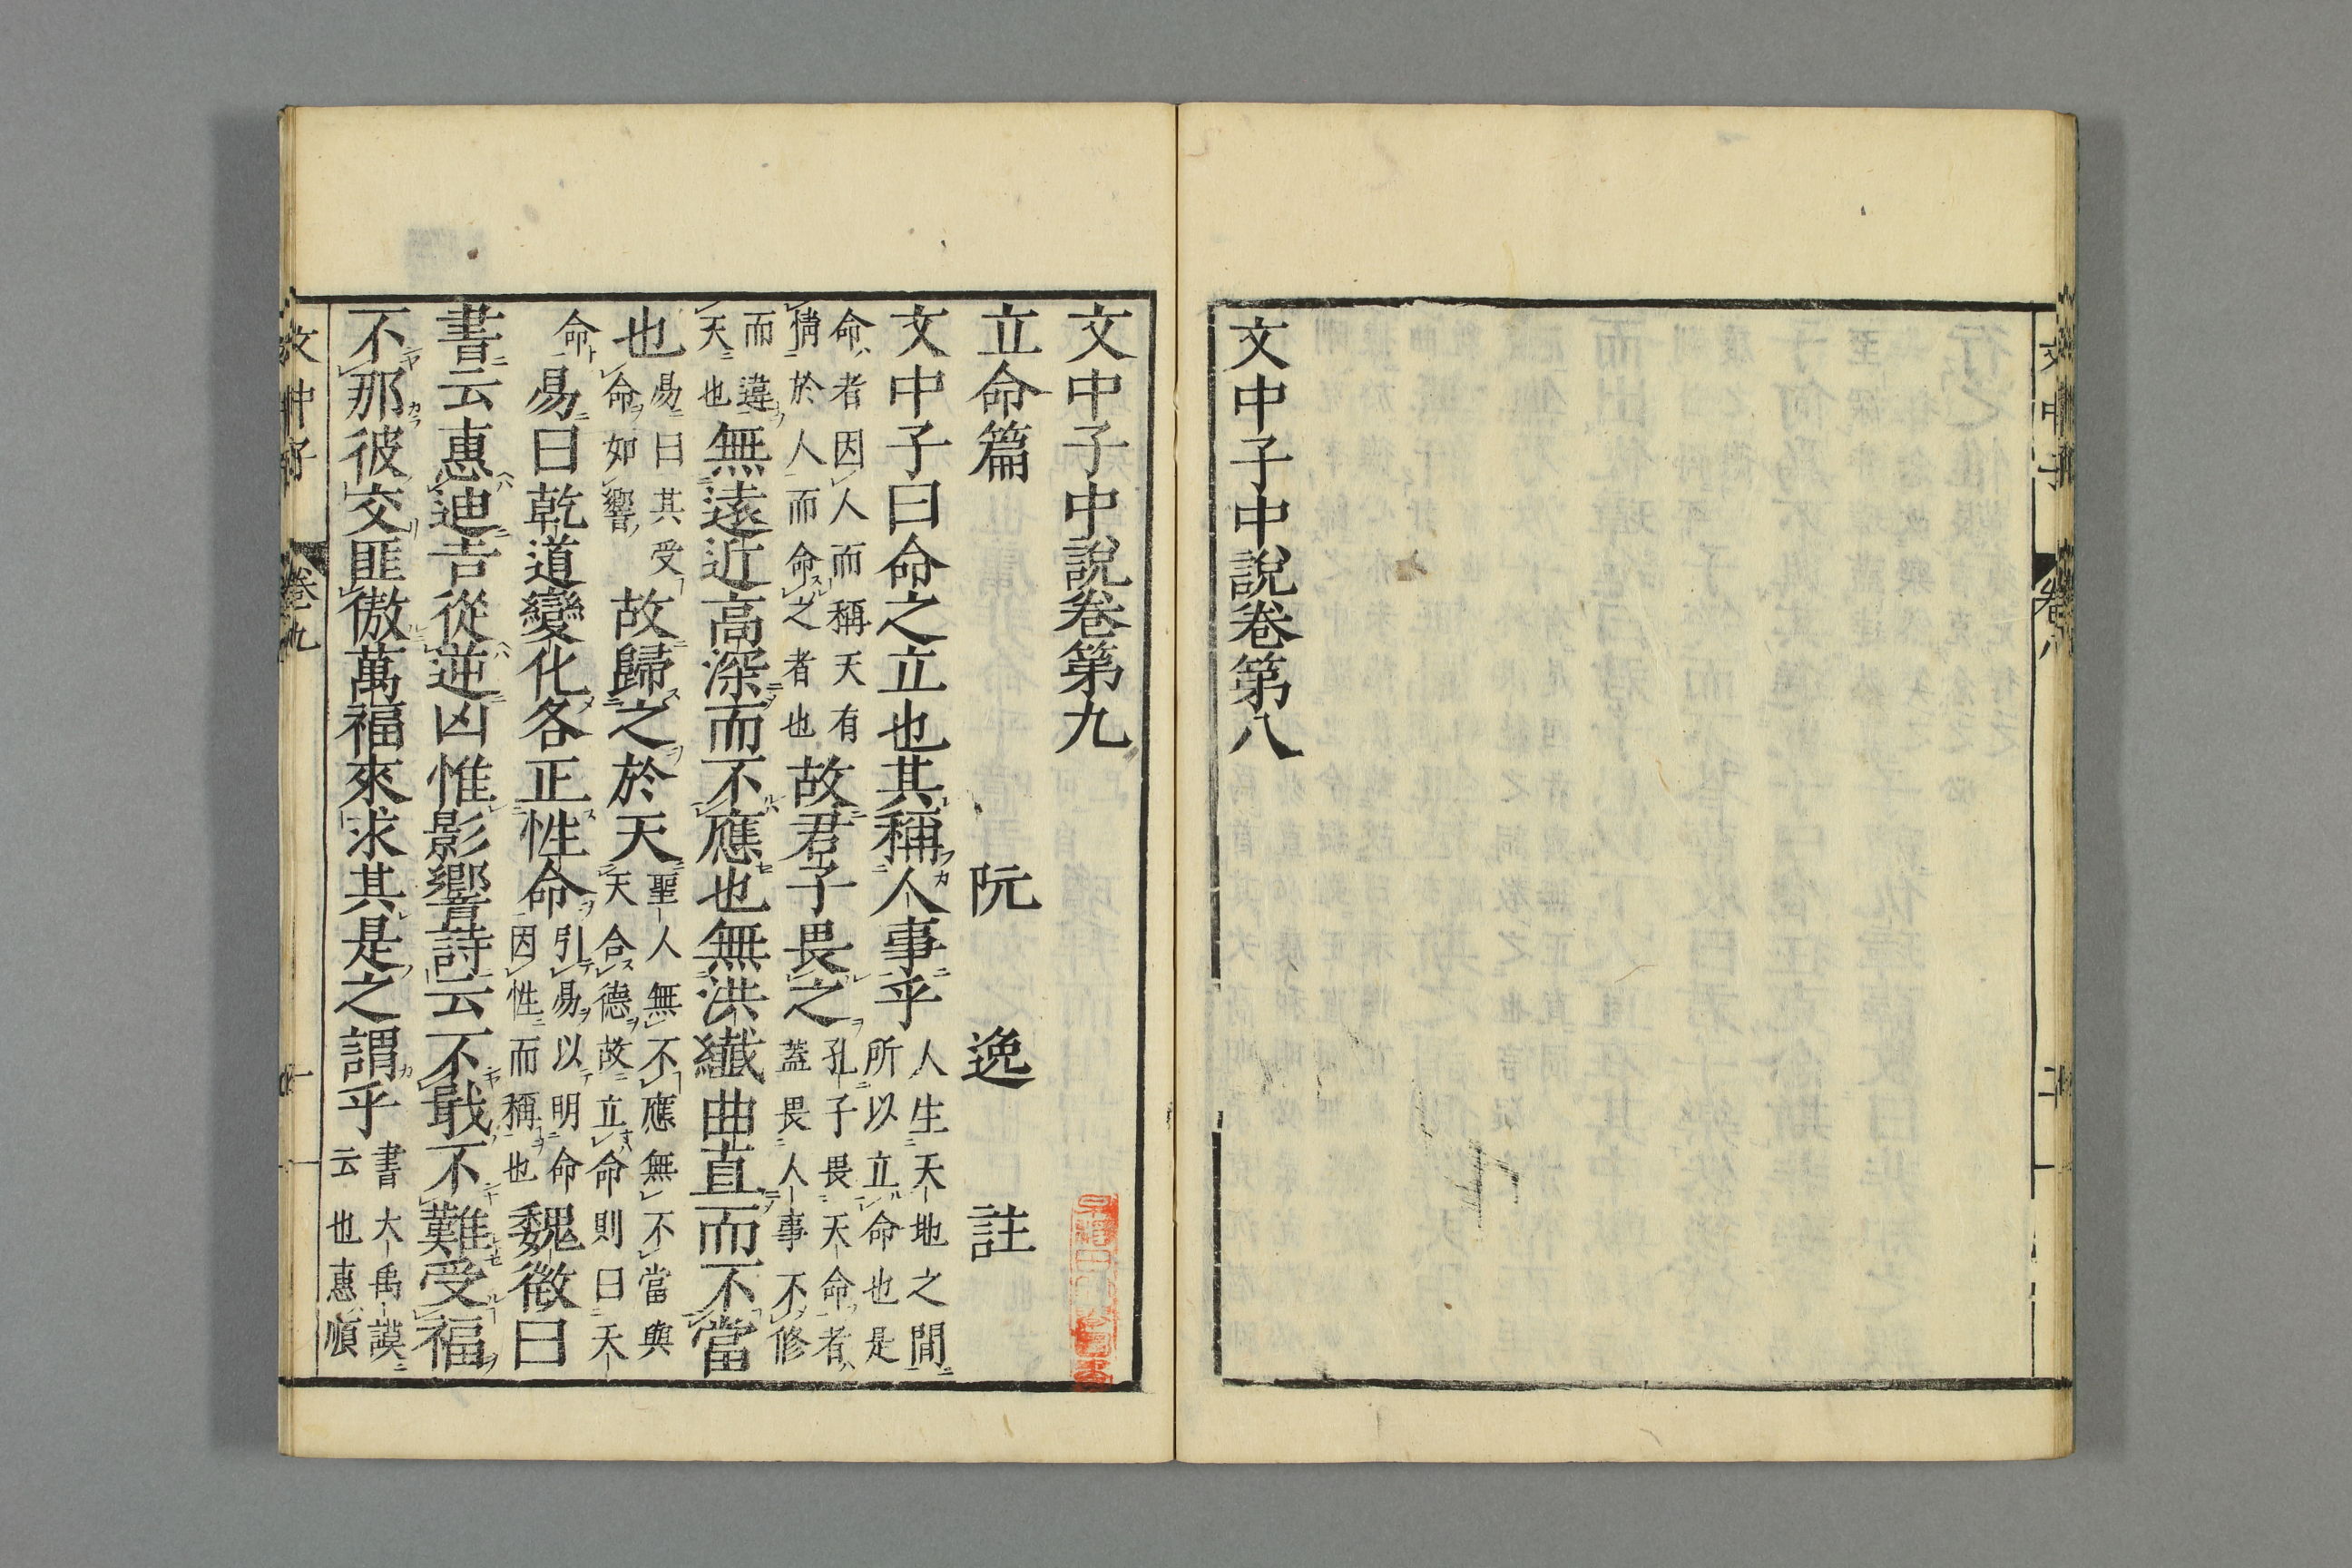 文中子中說卷第八
文中子中說卷第九
立命篇 阮 逸 註
文中子曰命之立也其稱人事乎人生天地之間所以立命也是
命者因人而稱天有情於人而命之者也故君子畏之孔子畏天命者蓋畏人事不修
而違天也無遠近高深而不應也無洪纖曲直而不當
也易曰其受命如響故歸之於天聖人無不應無不當與天合德故立命則曰天
命易曰乾道變化各正性命引易以明命因性而稱也魏徵曰
書云惠迪吉從逆凶惟影響詩云不戢不難受福
不那彼交匪傲萬福來求其是之謂乎書大禹謨云也惠順
文中子 卷九 一